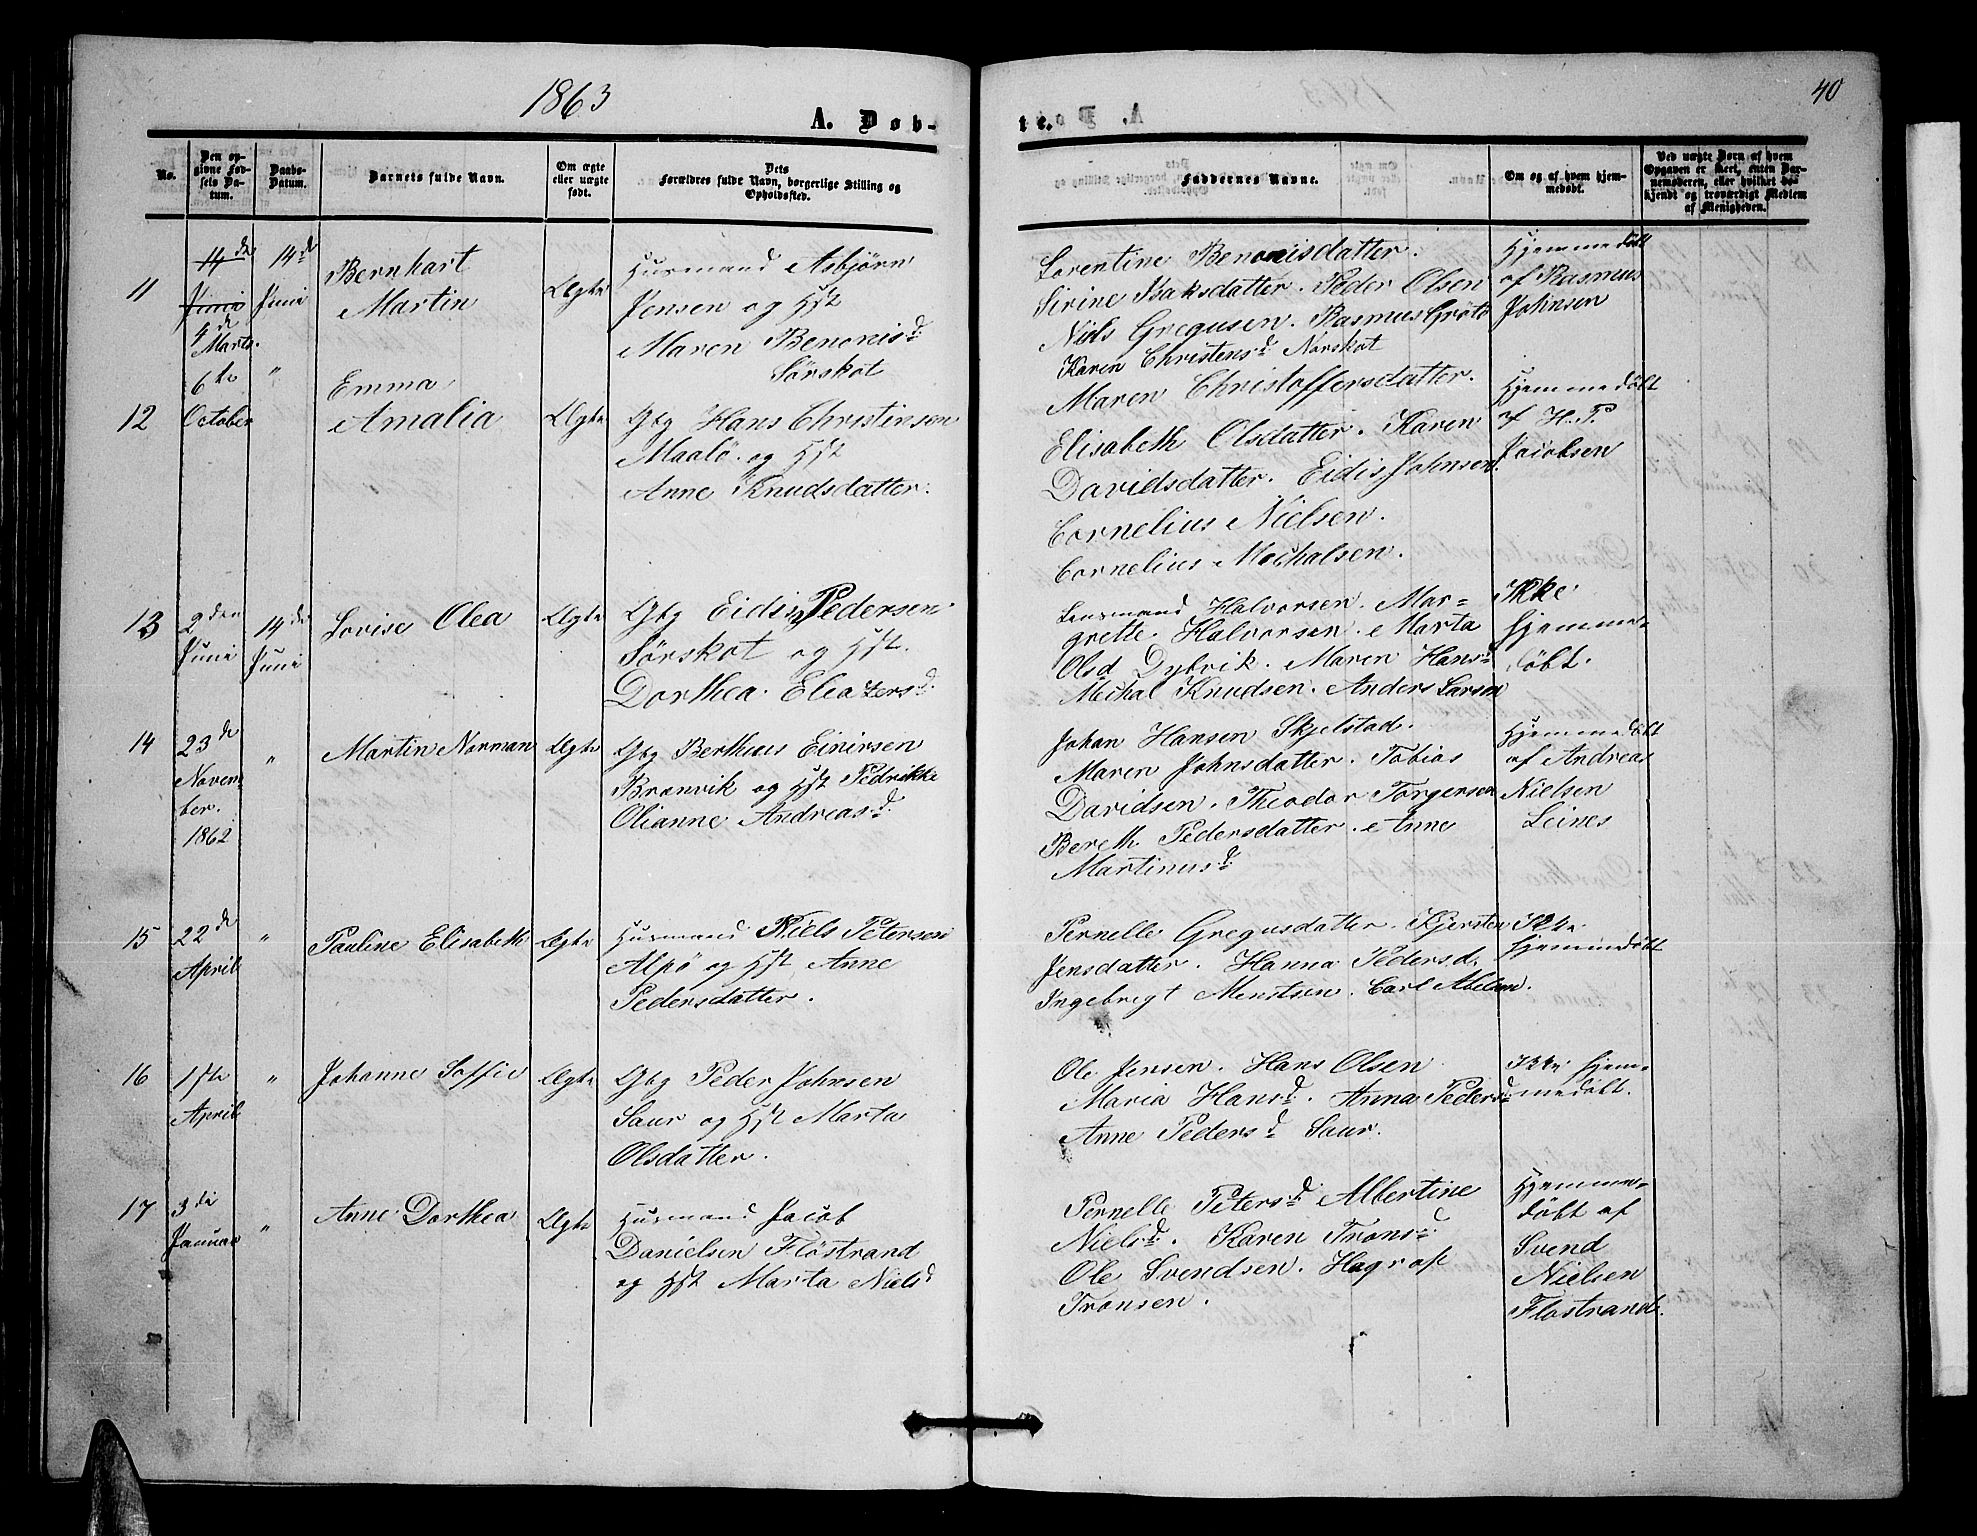 1863
A. Døb-
No.
Den opgivne Fødsels Datum.
Daabs-Datum.
Barnets fulde Navn.
Om ægte eller uægte født.
Dets Forældres fulde Navn, borgerlige Stilling og Opholdssted.
11
14de
Juni
4de
Marts.
14de
Juni
Bernhart
Martin
Ægte
Husmand Asbjørn
Jensen og Hst
Maren Benonisd.
Sörskot
12
6te
October
"
Emma
Amalia
Ægte
Gbg Hans Christensen
Maalö. og Hst
Anne Knudsdatter.
13
2den
Juni
14de
Juni
Lovise Olea
Ægte
Gbg Eidis Pedersen
Sörskot og Hst.
Dorthea. Eleazersd.
14
23de
November.
1862
"
Martin Norman
Ægte
Gbg Bertheus Einersen
Branvik og Hst Pedrikke
Olianne Andreasd.
15
22de
April
"
Pauline Elisabeth
Ægte
Husmand Niels Petersen
Alpö og Hst Anne
Pedersdatter.
16
1ste
April
"
Johanne Soffie
Ægte
Gbg Peder Johnsen
Saur og Hst Marta
Olsdatter.
17
3die
Januar
"
Anne Dorthea
Ægte
Husmand Jacob
Danielsen Flöstrand
og Hst Marta Nielsd
40
te.
Faddernes Navne.
Om og af hvem hjemmedøbt.
Ved uægte Børn af hvem Opgaven er skeet, enten Barnemoderen, eller hvilket bekjendt og troværdigt Medlem af Menigheden.
Lorentine Benonisdatter.
Sirine Isaksdatter. Peder Olsen
Niels Gregusen. Rasmus Gröto
Karen Christensd Nörskot
Hjemmedøbt
af Rasmus
Johnsen
Maren Christoffersdatter.
Elisabeth Olsdatter. Karen
Davidsdatter. Eidis Johnsen.
Cornelius Nielsen.
Cornelius Mechalsen.
Hjemmedøbt
af H. P.
Jacobsen
Lensmand Halvorsen. Mar-
grette. Halvorsen. Marta
Olsd Dybvik. Maren Hansd
Michal Knudsen. Anders Larsen
Ikke
Hjemme-
døbt.
Johan Hansen Skjelstad.
Maren Johnsdatter. Tobias
Davidsen. Theodor Torgersen
Bereth. Pedersdatter. Anne
Martinusd.
Hjemmedøbt
af Andreas
Nielsen
Leines
Pernelle Gregusdatter. Kjersten
Jensdatter. Hanna Pedersd.
Ingebregt Mentsen. Carl Abelsen.
Ikke
hjemmedøbt
Ole Jensen. Hans Olsen
Maria Hansd. Anna Pedersd
Anne Pedersd Saur.
Ikke hjem-
medøbt.
Pernelle Petersd. Albertine
Nielsd. Karen Tronsd
Ole Svendsen. Hagrof
Tronsen.
Hjemme-
døbt af
Svend
Nielsen
Flostrand.